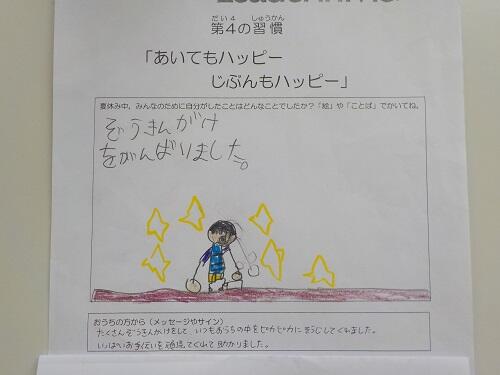 だい4 しゅうかん
第4の習慣
「あいてもハッピー
じぶんもハッピー」
夏休み中、みんなのために自分がしたことはどんなことでしたか？「絵」や「ことば」でかいてね。
ぞうきんがけ
をがんばりました。
おうちの方から（メッセージやサイン）
たくさんぞうきんがけをして、いつもおうちの中をピカピカにそうじしてくれました。
いっぱいお手伝いを頑張ってくれて助かりました。